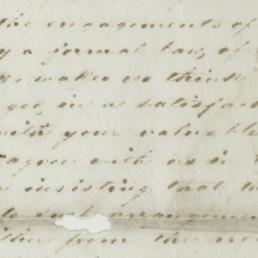 the engagements of
by a formal law, of
makes us think
in a satisfac
with your valuable
agree with us in
insisting that
such arrangemen
from the